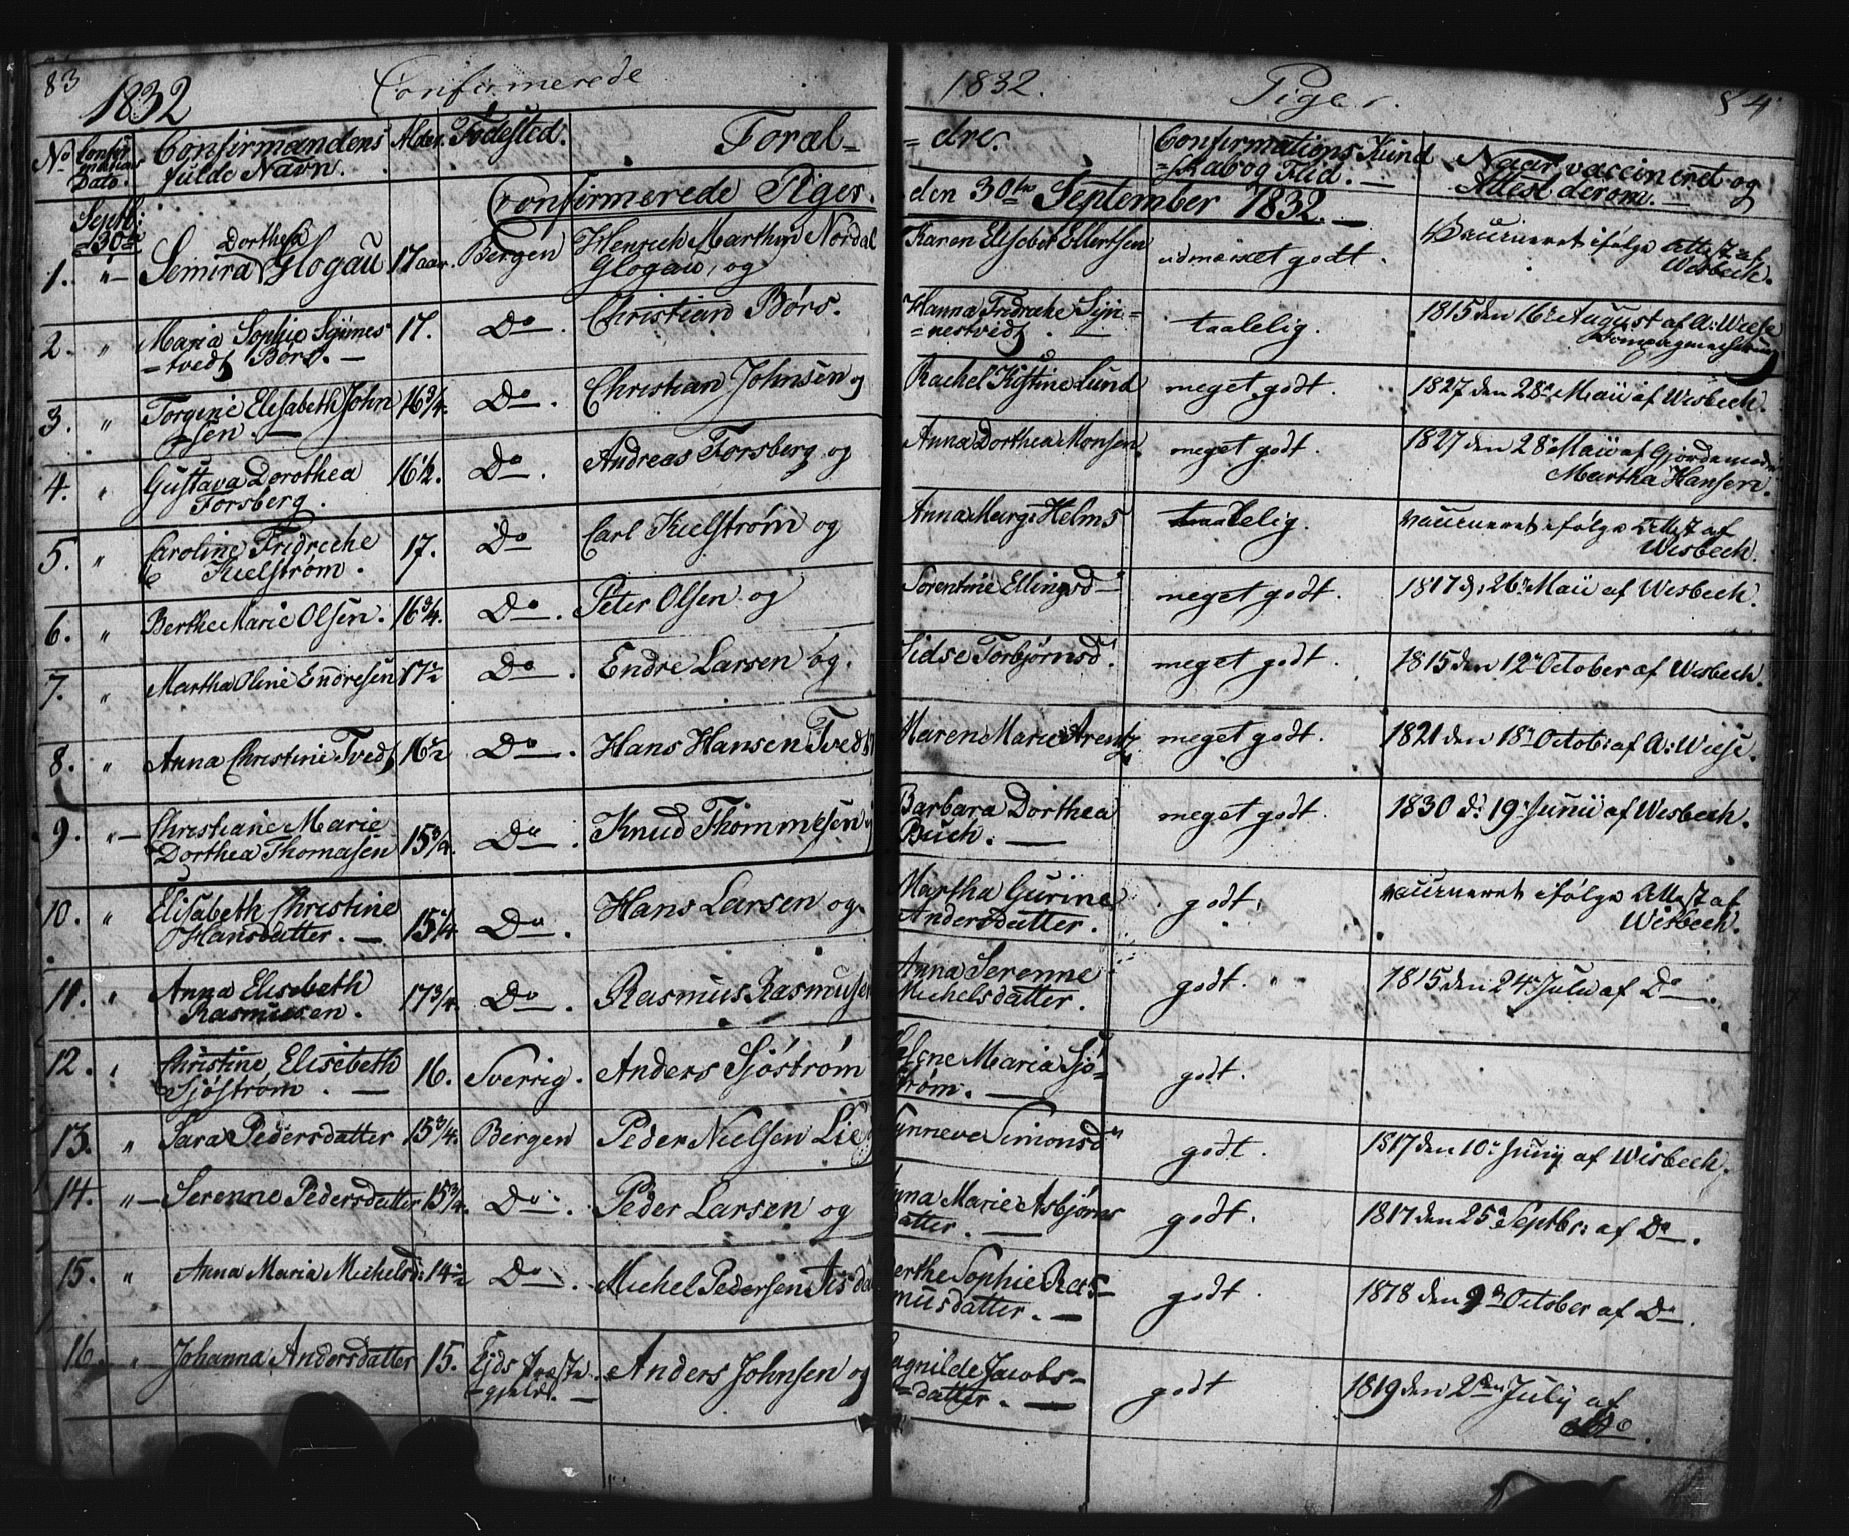 83
1832 Confirmerede
1832. Piger. 84
No Confirmations Dato. Confirmandens fulde Navn. Alder. Fødested. Foræl-
= dre. Confirmations Kund = skab og Flid. — Naar vaccineret og Attest derom. —
Septb: 30te Confirmerede Piger.
den 30te September 1832. —
1. " — Dorthea
Semira Glogau 17 aar. Bergen Henrich Marthin Nordal
Glogau, og
Karen Elisabet Ellertsen udmærket godt. Vaccineret ifølge Attest af
Wisbech.
2. " Maria Sophie Synnes-
-tvedt Børs. — 17. Do. Christian Børs.
Hanna Fredrikke Syn=
=nestvedt. — taalelig. 1815 den 16de August af A: Wiese
3. " Torgine Elisabeth John
=sen. — 16 3/4. Do. Christian Johnsen og
Rachel Kistine Lund meget godt. 1827 den 28de Maii af Wisbech.
4. " Gustava Dorothea
Forsberg. 16 1/2. Do. Andreas Forsberg og
Anna Dorthea Monsen. meget godt. 1827 den 28de Maii af Gjordemoder
Martha Hansen.
5. " Caroline Fridrikke
Kielstrøm. 17. Do Carl Kielstrøm og
Anna Marg: Helms taalelig. vaccineret ifølge Attest af
Wisbech.
6. " Berthe Marie Olsen. 16 3/4. Do. Peter Olsen og
Sorentine Ellingsd— meget godt. 1817 d: 26de Maii af Wisbech.
7. " Martha Oline Endresen 17 1/2 Do. Endre Larsen og.
Sidse Torbjørnsd. meget godt. 1815 den 12te October af Wisbech.
8. " Anna Christine Tvedt 16 1/2 Do. Hans Hansen Tvedt
Maren Marie Arentz meget godt. 1821 den 18de Octob: af A: Wiese.
9. " — Christiane Marie
Dorthea Thomasen 15 3/4. Do. Knud Thommesen
Barbara Dorthea
Buch. — meget godt. 1830 d: 19de Junii af Wisbech.
10. " Elisabeth Christine
Hansdatter. — 15 1/4. Do. Hans Larsen og
Martha Gurine
Andersdatter. godt. vaccineret ifølge Attest af
Wisbech.
11. " Anna Elisabeth
Rasmussen. 17 3/4. Do. Rasmus Rasmusen
Anna Serenne
Michelsdatter. godt. 1815 den 24de Julii af Do.
12. " Christine Elisebeth
Sjøstrøm. — 16. Sverrig. Anders Sjøstrøm
Helene Maria Sjø=
strøm. — godt.
13. " Sara Pedersdatter 15 3/4. Bergen Peder Nielsen Lie
Synneve Simonsd godt. 1817 den 10de Junij af Wisbech.
14. " — Serenne Pedersdatter 15 3/4. Do. Peder Larsen og
Anna Marie Asbjørns
datter. — godt. 1817 den 25de Septbr: af Do.
15. " Anna Maria Michelsd: 14 1/2 Do. Michel Pedersen
Berthe Sophie Ras-
musdatter. — godt. 1818 den 9de October af Do.
16. " Johanna Andersdatter 15. Ejds Præste
=gjeld. — Anders Johnsen og
Ragnilde Jacobs-
=datter. — godt 1819 den 2den July af
Do.